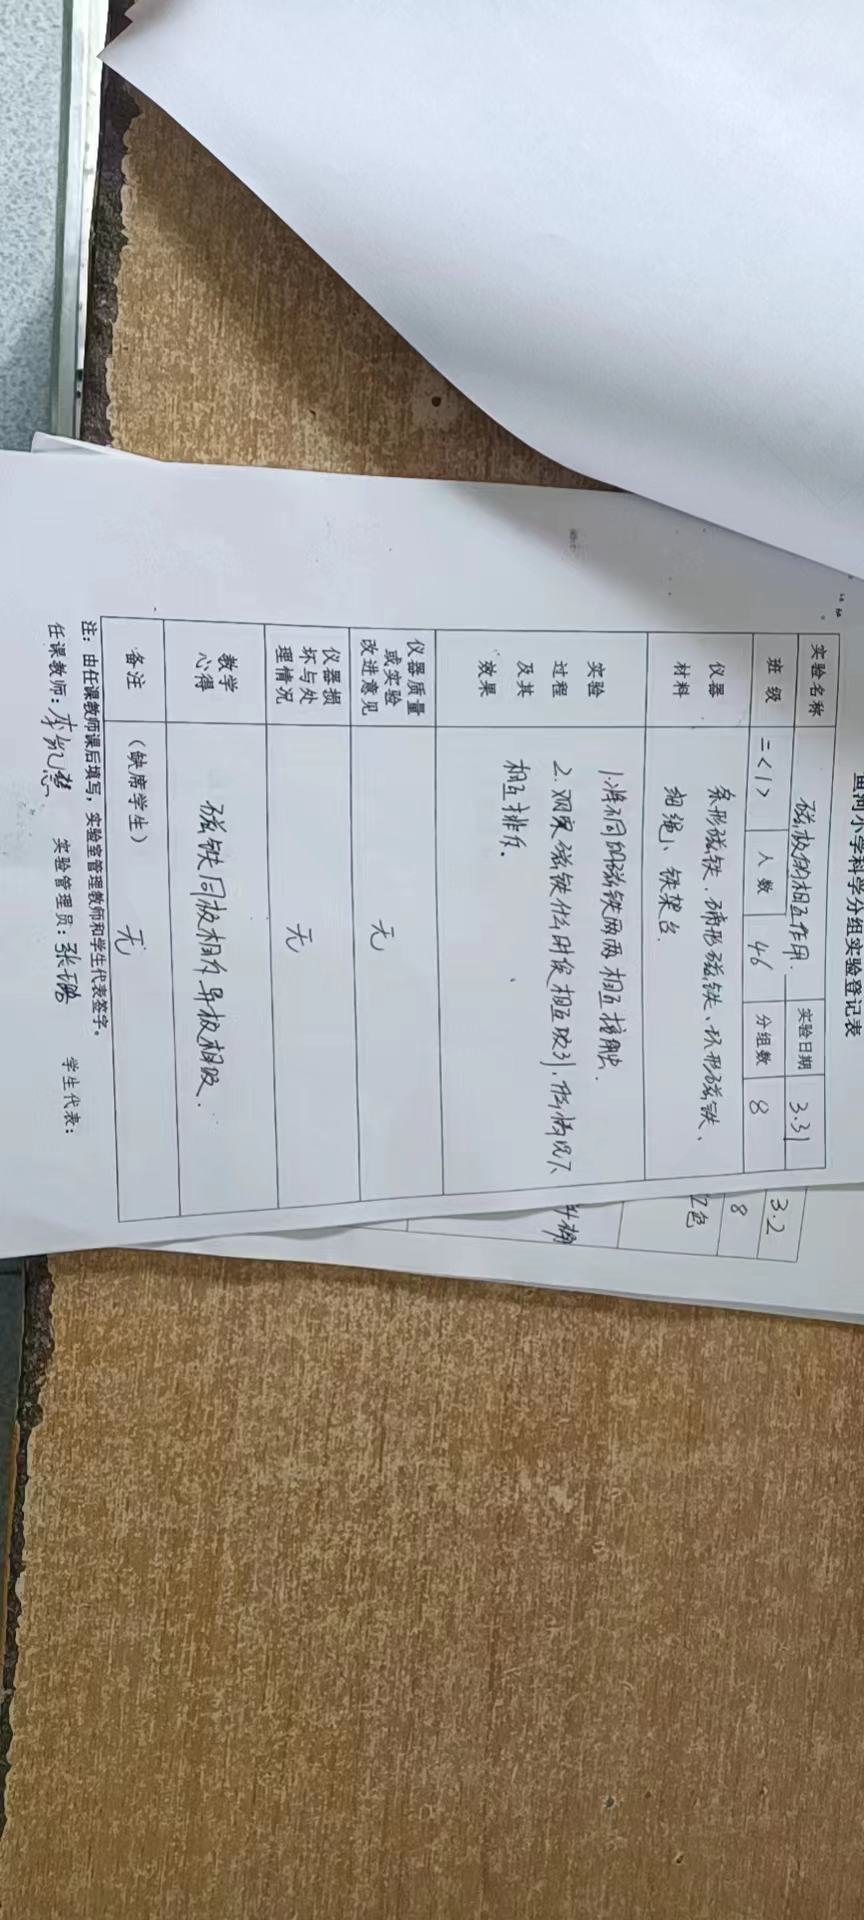 鱼河小学科学分组实验登记表
实验名称 磁极的相互作用. 实验日期 3.31
班 级 二<1> 人 数 46 分组数 8
仪器
材料
条形磁铁、蹄形磁铁、环形磁铁、
细绳、铁架台.
实验
过程
及其
效果
1.将不同的磁铁两两相互接触.
2.观察磁铁什么时候相互吸引,什么情况下
相互排斥.
仪器质量
或实验
改进意见
无
仪器损
坏与处
理情况
无
教学
心得
磁铁同极相斥异极相吸.
备注 (缺席学生) 无
注:由任课教师课后填写,实验室管理教师和学生代表签字。
任课教师: 实验管理员: 学生代表:
3.2
8
红色